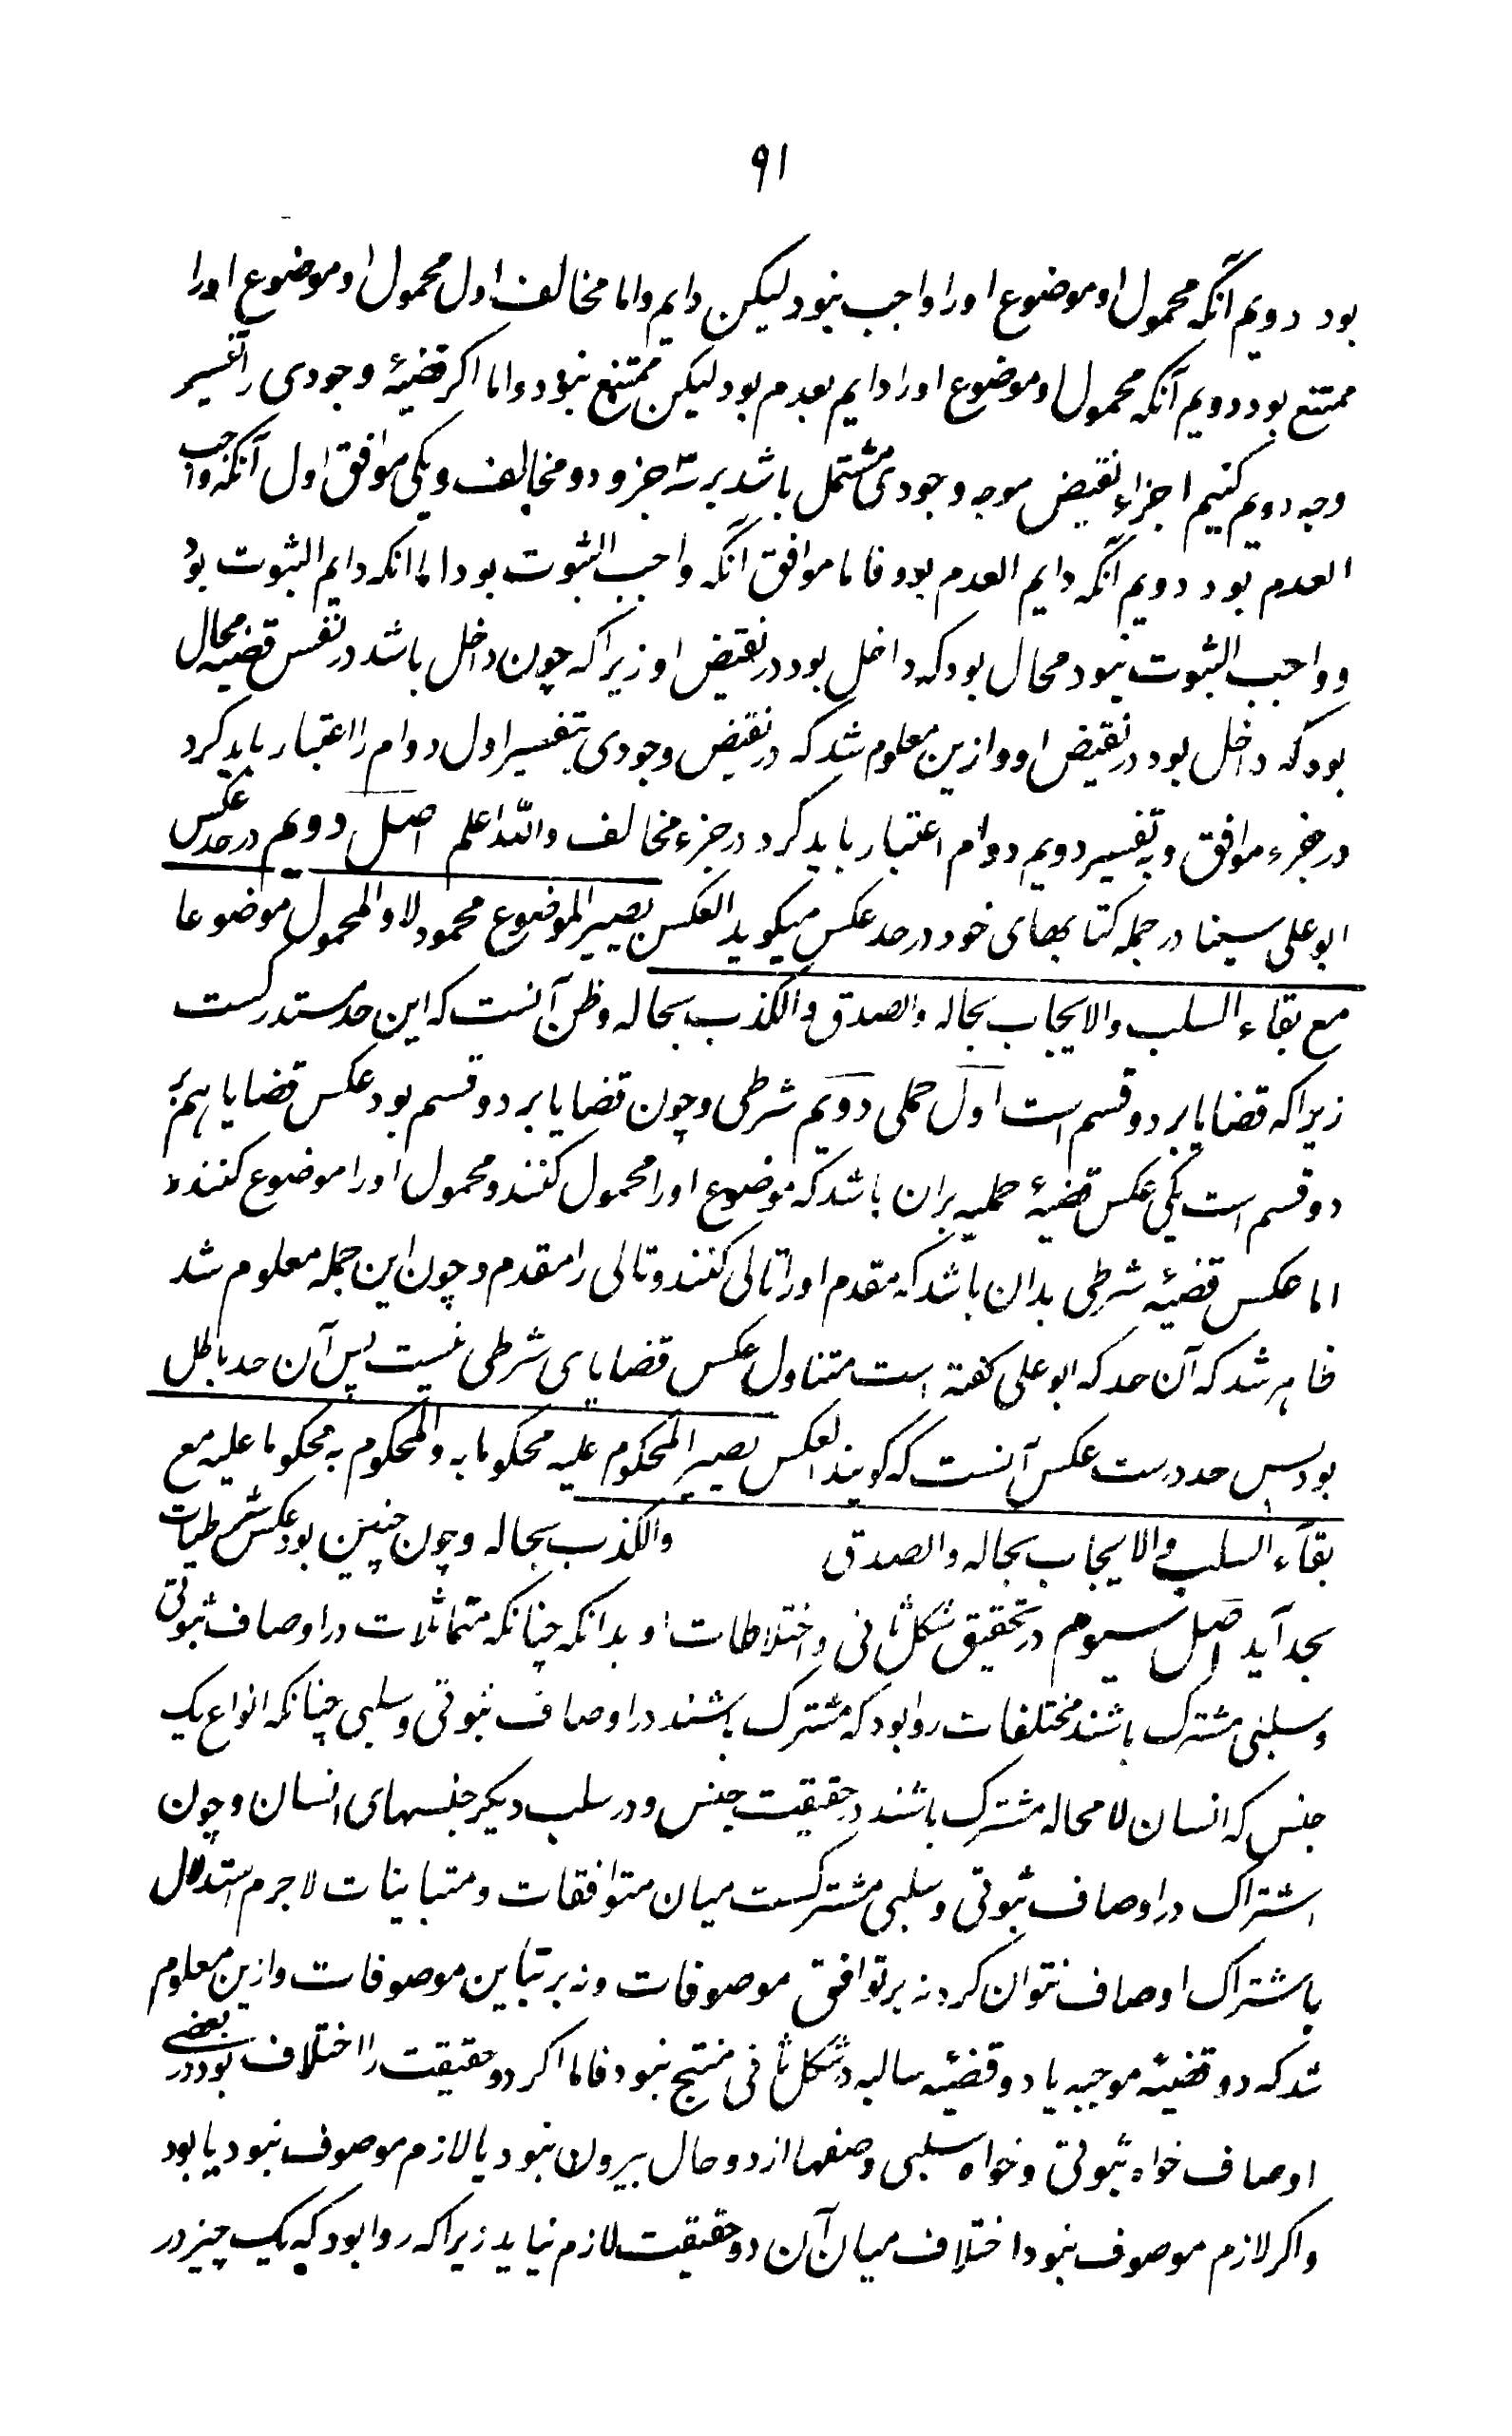 ۹۱
بود دویم آنکه محمول او موضوع اورا واجب نبود لیکن دایم واما مخالف اول محمول او موضوع اورا
ممتنع بود دویم آنکه محمول او موضوع اورا دایم بعدم بود لیکن ممتنع نبود واما اکر قضیهٔ وجودی را تفسیر
وجه دویم کنیم اجزاء نقیض موجه وجودی مشتمل باشد برسه جزو دو مخالف ویکی موافق اول آنکه واجب
العدم بود دویم آنکه دایم العدم بود فاما موافق آنکه واجب الثبوت بود اما انکه دایم الثبوت بود
وواجب الثبوت نبود محال بود که داخل بود در نقیض او زیرا که چون داخل باشد در نفس قضیه محال
بود که داخل بود در نقیض او وازین معلوم شد که در نقیض وجودی بتفسیر اول دوام را اعتبار باید کرد
در جزء موافق و به تفسیر دویم دوام اعتبار باید کرد در جزء مخالف والله اعلم اصل دویم در حد عکس
ابو علی سینا در جمله کتابهای خود در حد عکس میکوید العکس یصیر الموضوع محمولا والمحمول موضوعا
مع بقاء السلب والایجاب بحاله والصدق والکذب بحاله وظن آنست که این حد مستدرکست
زیرا که قضایا بر دو قسم است اول حملی دویم شرطی وچون قضایا بر دو قسم بود عکس قضایا هم بر
دو قسم است یکی عکس قضیهٔ حملیه بران باشد که موضوع اورا محمول کنند و محمول اورا موضوع کنند و
اما عکس قضیهٔ شرطی بدان باشد که مقدم اورا تالی کنند و تالی را مقدم وچون این جمله معلوم شد
ظاهر شد که آن حد که ابو علی کفته است متناول عکس قضایای شرطی نیست پس آن حد باطل
بود پس حد درست عکس آنست که کویند العکس یصیر المحکوم علیه محکوما به والمحکوم به محکوما علیه مع
بقآء السلب والایجاب بحاله والصدق والکذب بحاله وچون چنین بود عکس شرطیات
بحد آید اصل سیوم در تحقیق شکل ثانی و اختلاطات او بدانکه چنانکه متماثلات در اوصاف ثبوتی
و سلبی مشترک باشند مختلفات روا بود که مشترک باشند در اوصاف ثبوتی و سلبی چنانکه انواع یک
جنس که انسان لا محاله مشترک باشند در حقیقت جنس و در سلب دیکر جنسهای انسان وچون
اشتراک در اوصاف ثبوتی و سلبی مشترکست میان متوافقات و متباینات لا جرم استدلال
باشتراک اوصاف نتوان کرد نه بر توافق موصوفات و نه بر تباین موصوفات وازین معلوم
شد که دو قضیهٔ موجبه یا دو قضیهٔ سالبه در شکل ثانی منتج نبود فاما اکر دو حقیقت را اختلاف بود در بعضی
اوصاف خواه ثبوتی و خواه سلبی وصفها از دو حال بیرون نبود یا لازم موصوف نبود یا بود
واکر لازم موصوف نبود اختلاف میان آن دو حقیقت لازم نیاید زیرا که روا بود که یک چیز در